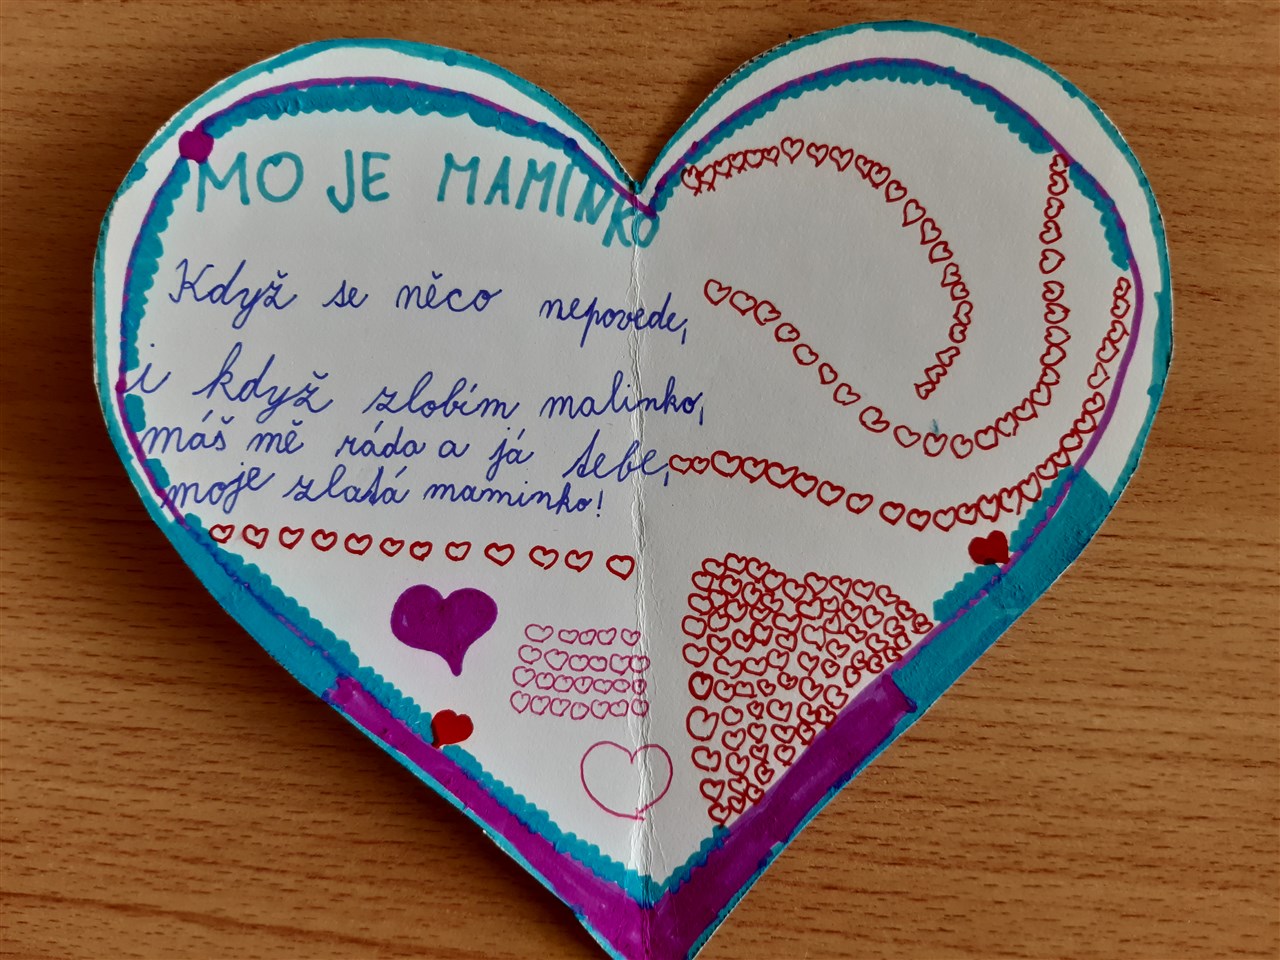 MOJE MAMINKO
Když se něco nepovede,
i když zlobím malinko,
máš mě ráda a já tebe,
moje zlatá maminko!